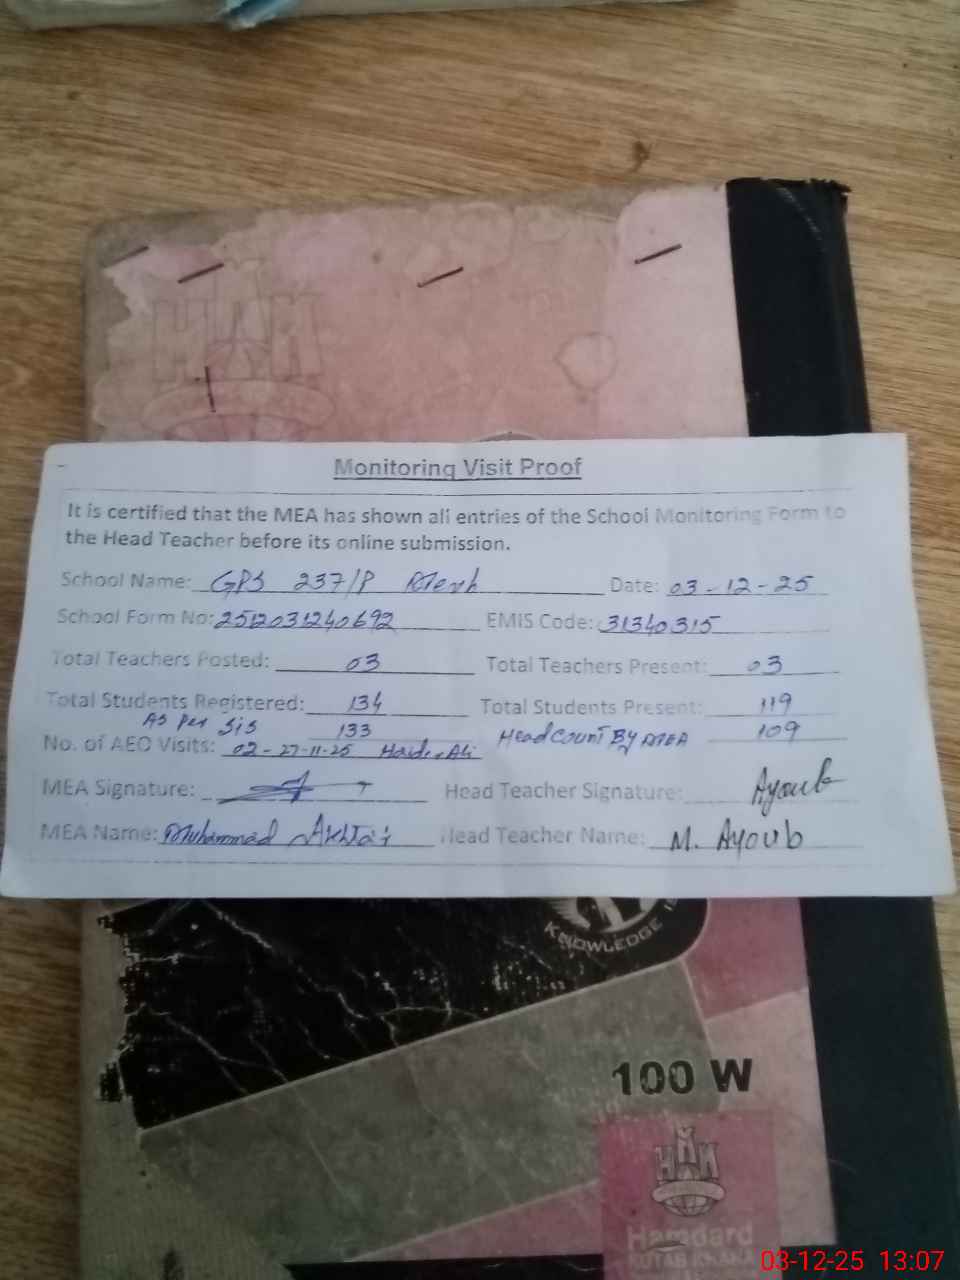 Monitoring Visit Proof
It is certified that the MEA has shown all entries of the School Monitoring Form to
the Head Teacher before its online submission.
School Name: GPS 237/P Date: 03-12-25
School Form No: 2512031240692 EMIS Code: 31340315
Total Teachers Posted: 03 Total Teachers Present: 03
Total Students Registered: 134 Total Students Present: 119
As Per SiS 133 Head Count By MEA 109
No. of AEO Visits: 02-27-11-25 Haider Ali
MEA Signature: Head Teacher Signature: Ayoub
MEA Name: Muhammad Akhtar Head Teacher Name: M. Ayoub
KNOWLEDGE
100 W
HAK
Hamdard
KUTAB KHANA
03-12-25 13:07